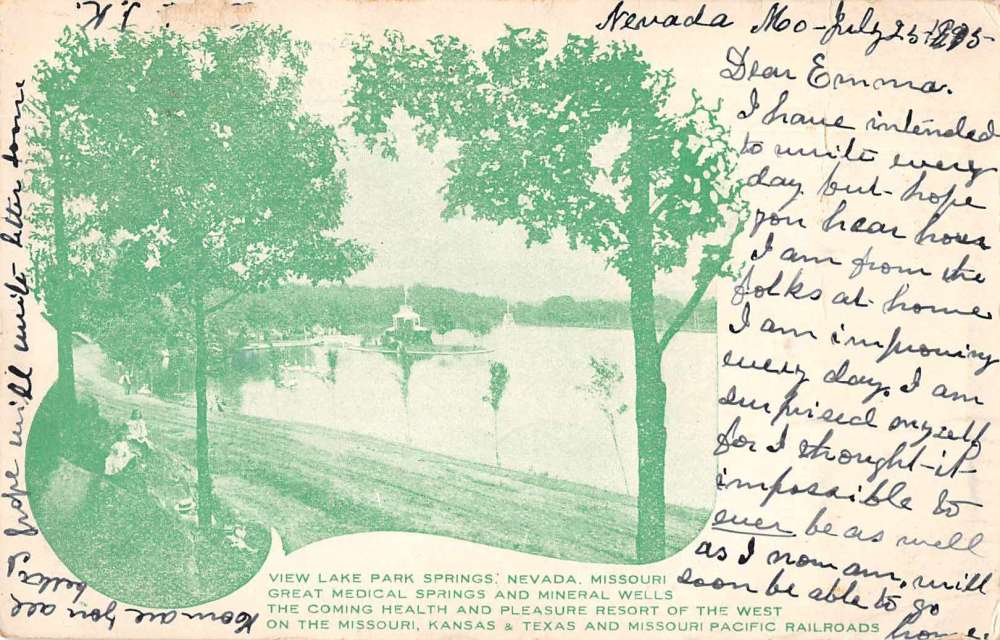 Nevada Mo - July 25 - 1905
Dear Emma.
I have intended
to write every
day but - hope
you hear how
I am from the
folks at home
I am improving
every day. I am
surprised myself
for I thought - it
impossible to
ever be as well
as I now am, will
soon be able to go
home.
How are you all
hope will write better soon
J. K.
VIEW LAKE PARK SPRINGS, NEVADA, MISSOURI
GREAT MEDICAL SPRINGS AND MINERAL WELLS
THE COMING HEALTH AND PLEASURE RESORT OF THE WEST
ON THE MISSOURI, KANSAS & TEXAS AND MISSOURI PACIFIC RAILROADS